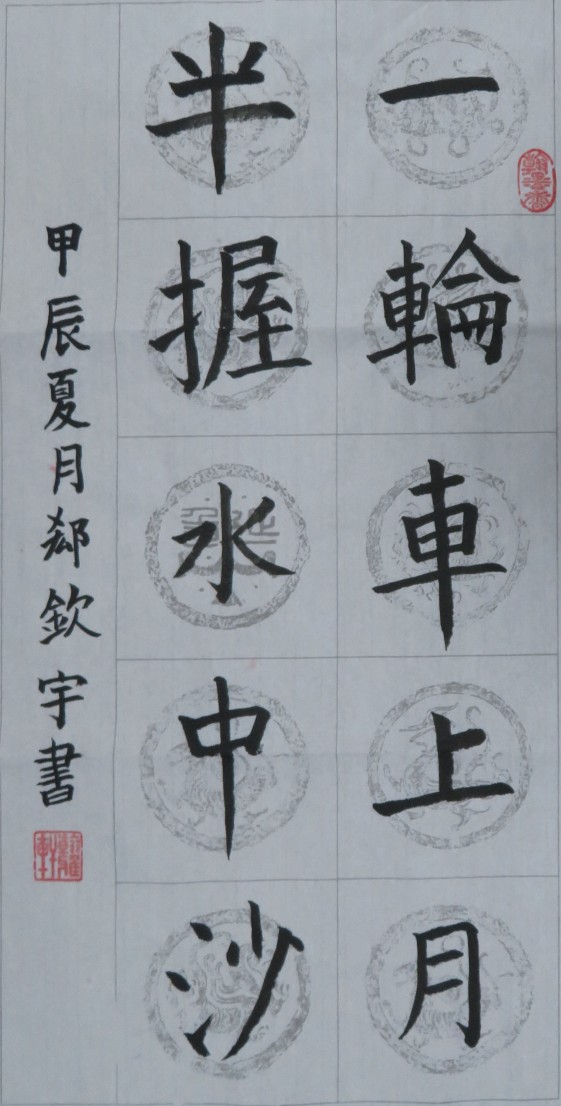 一輪車上月
半握水中沙
甲辰夏月郄欽宇書